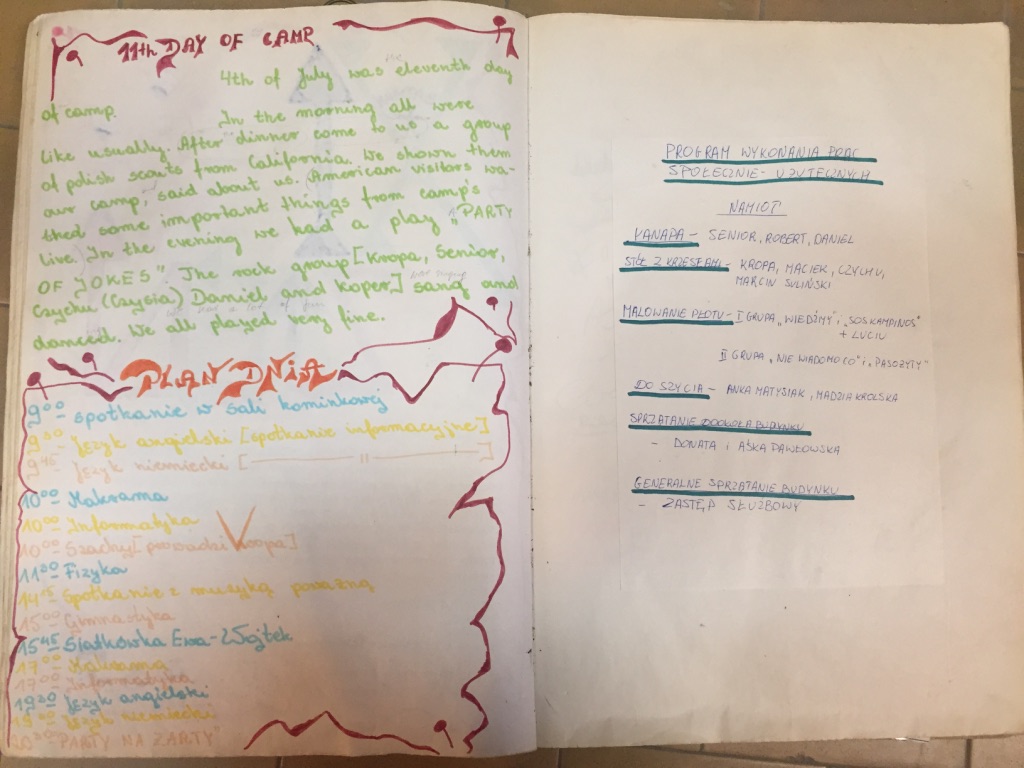 11th DAY OF CAMP.
4th of July was the eleventh day
of camp. In the morning all were
like usually. After dinner come to us a group
of polish scouts from California. We shown them
our camp, said about us. American visitors wa-
thed some important things from camp's
live. In the evening we had a play "PARTY
OF JOKES". The rock group [Kropa, Senior,
Czychu (Czysia) Daniel and Koper] sang and
danced. We all played very fine.
PLAN DNIA
9⁰⁰ - spotkanie w sali kominkowej
9³⁰ - Język angielski [spotkanie informacyjne]
9⁴⁵ - Język niemiecki [ ——— 11 ——— ]
10⁰⁰ Makrama
10⁰⁰ Informatyka
10⁰⁰ Szachy [prowadzi Kropa]
11⁰⁰ Fizyka
14¹⁵ Spotkanie z muzyką poważną
15⁰⁰ Gimnastyka
15⁴⁵ Siatkówka Ewa-Wojtek
17⁰⁰ Makrama
17⁰⁰ Informatyka
19³⁰ Język angielski
19⁰⁰ Język niemiecki
20³⁰ "PARTY NA ŻARTY"
PROGRAM WYKONANIA PRAC
SPOŁECZNIE - UŻYTECZNYCH
NAMIOT
KANAPA - SENIOR, ROBERT, DANIEL
STÓŁ Z KRZESŁAMI - KROPA, MACIEK, CZYCHU,
MARCIN SULIŃSKI
MALOWANIE PŁOTU - I GRUPA "WIEDŹMY" i "SOS KAMPINOS"
+ LUCIU
II GRUPA "NIE WIADOMO CO" i "PASOŻYTY"
DO SZYCIA - ANKA MATYSIAK, MADZIA KROLSKA
SPRZĄTANIE DOOKOŁA BUDYNKU
- DONATA I AŚKA PAWŁOWSKA
GENERALNE SPRZĄTANIE BUDYNKU
- ZASTĘP SŁUŻBOWY